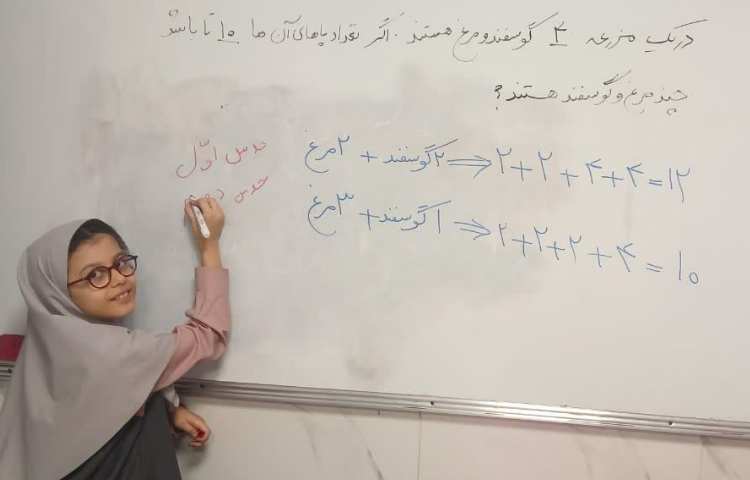 در یک مزرعه ۴ گوسفند و مرغ هستند. اگر تعداد پاهای آن ها ۱۰ تا باشد
چند مرغ و گوسفند هستند؟
حدس اوّل ۲ مرغ + ۲ گوسفند ⇒ ۲+۲+۴+۴=۱۲
حدس دوم ۳ مرغ + ۱ گوسفند ⇒ ۲+۲+۲+۴=۱۰